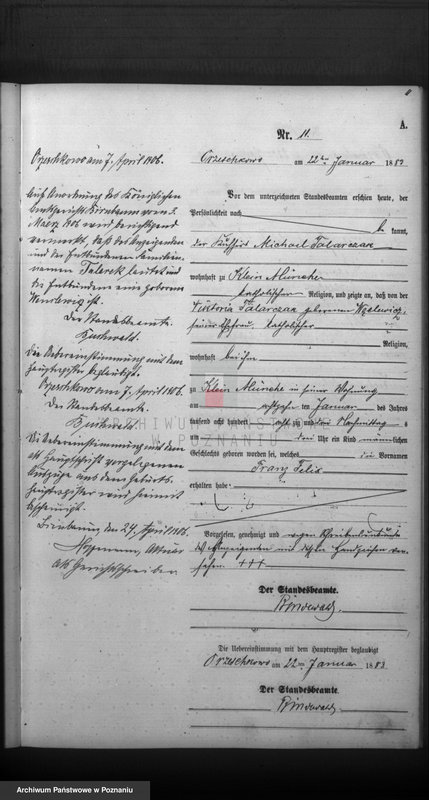 11
A.
Nr. 11.
Orzeschkowo am 22ten Januar 1883
Vor dem unterzeichneten Standesbeamten erschien heute, der
Persönlichkeit nach
kannt,
der Michael Talarczak
wohnhaft zu Klein Münche
katholischer Religion, und zeigte an, daß von der
Viktoria Talarczak geborenen
seiner Ehefrau, katholischer
Religion,
wohnhaft bei ihm
zu Klein Münche in seiner Wohnung
am achtzehnten Januar des Jahres
tausend acht hundert acht zig und drei Nachmittags
um drei Uhr ein Kind männlichen
Geschlechts geboren worden sei, welches die Vornamen
Franz Felix
erhalten habe.
Vorgelesen, genehmigt und wegen Schreibensunkunde
des Anzeigenden mit dessen Handzeichen ver-
sehen. +++
Der Standesbeamte.
Die Uebereinstimmung mit dem Hauptregister beglaubigt
Orzeschkowo am 22ten Januar 1883
Der Standesbeamte.
Orzeschkowo am 7. April 1906.
Auf Anordnung des Königlichen
Amtsgerichts Birnbaum vom 5.
Maerz 1906 wird berichtigend
vermerkt, daß des Anzeigenden
und der Entbundenen Familien-
namen Talarek lautet und
die Entbundene eine geborene
ist.
Der Standesbeamte.
Die Uebereinstimmung mit dem
Hauptregister beglaubigt.
Orzeschkowo am 7. April 1906.
Der Standesbeamte.
Die Uebereinstimmung mit dem
als Hauptschrift vorgelegenen
Auszuge aus dem Geburts-
Hauptregister wird hiermit
bescheinigt.
Birnbaum, den 24. April 1906.
als Gerichtsschreiber
ARCHIWUM PAŃSTWOWE
W POZNANIU
Archiwum Państwowe w Poznaniu